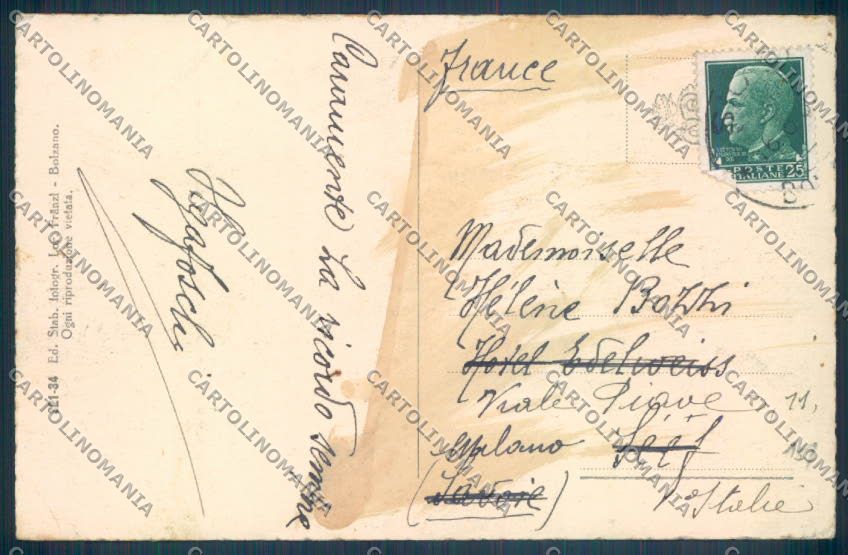 Caramente La ricordo sempre
321-34 Ed. Stab. fotogr. Leo Fränzl - Bolzano.
Ogni riproduzione vietata.
France
POSTE
ITALIANE 25
Mademoiselle
Hélène Bozzi
Hotel Edelweiss
Viale Piave 11,
Milano Séez
(Savoie)
Italie
CARTOLINOMANIA